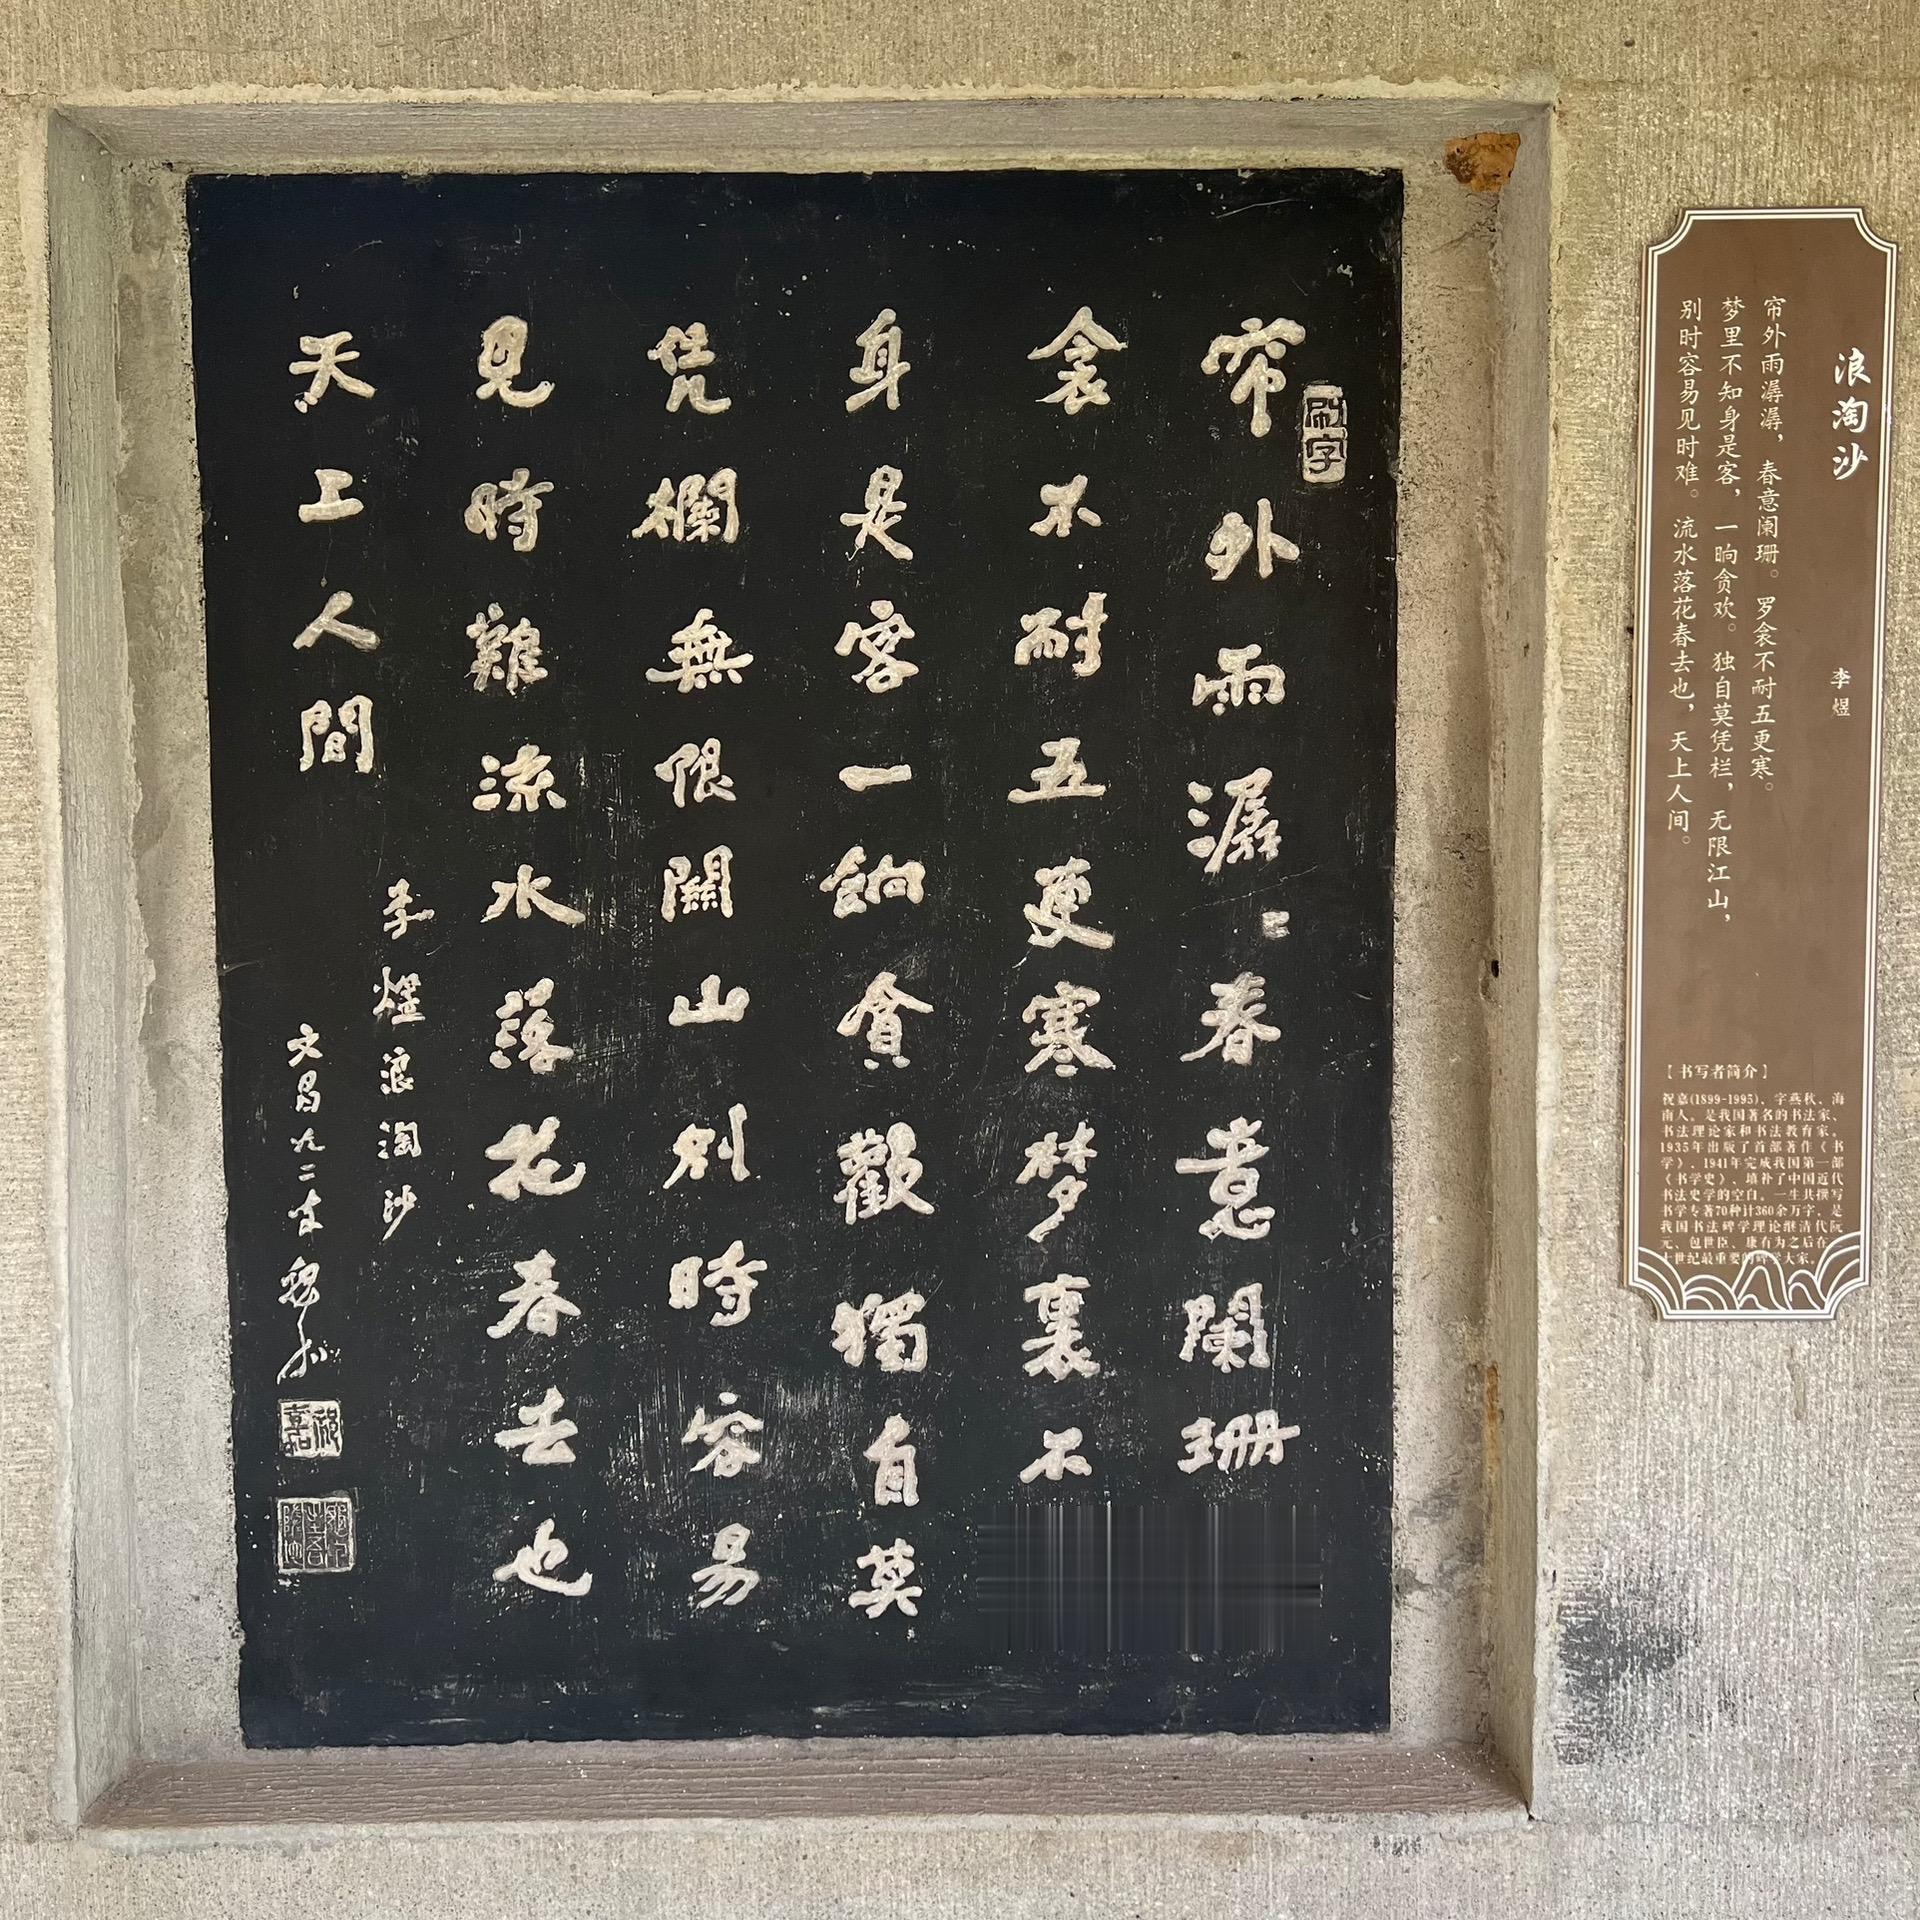 帘外雨潺〻春意闌珊
衾不耐五更寒梦裏不
身是客一餉貪歡獨自莫
凭欄無限關山别時容易
見時難流水落花春去也
天上人間
李煜浪淘沙
文昌九二叟祝嘉
祝嘉
浪淘沙
李煜
帘外雨潺潺，春意阑珊。罗衾不耐五更寒。
梦里不知身是客，一晌贪欢。独自莫凭栏，无限江山，
别时容易见时难。流水落花春去也，天上人间。
【书写者简介】
祝嘉(1899-1995)，字燕秋，海
南人，是我国著名的书法家、
书法理论家和书法教育家。
1935年出版了首部著作《书
学》，1941年完成我国第一部
《书学史》，填补了中国近代
书法史学的空白，一生共撰写
书学专著70种计360余万字，是
我国书法碑学理论继清代阮
元、包世臣、康有为之后在二
十世纪最重要的碑学大家。